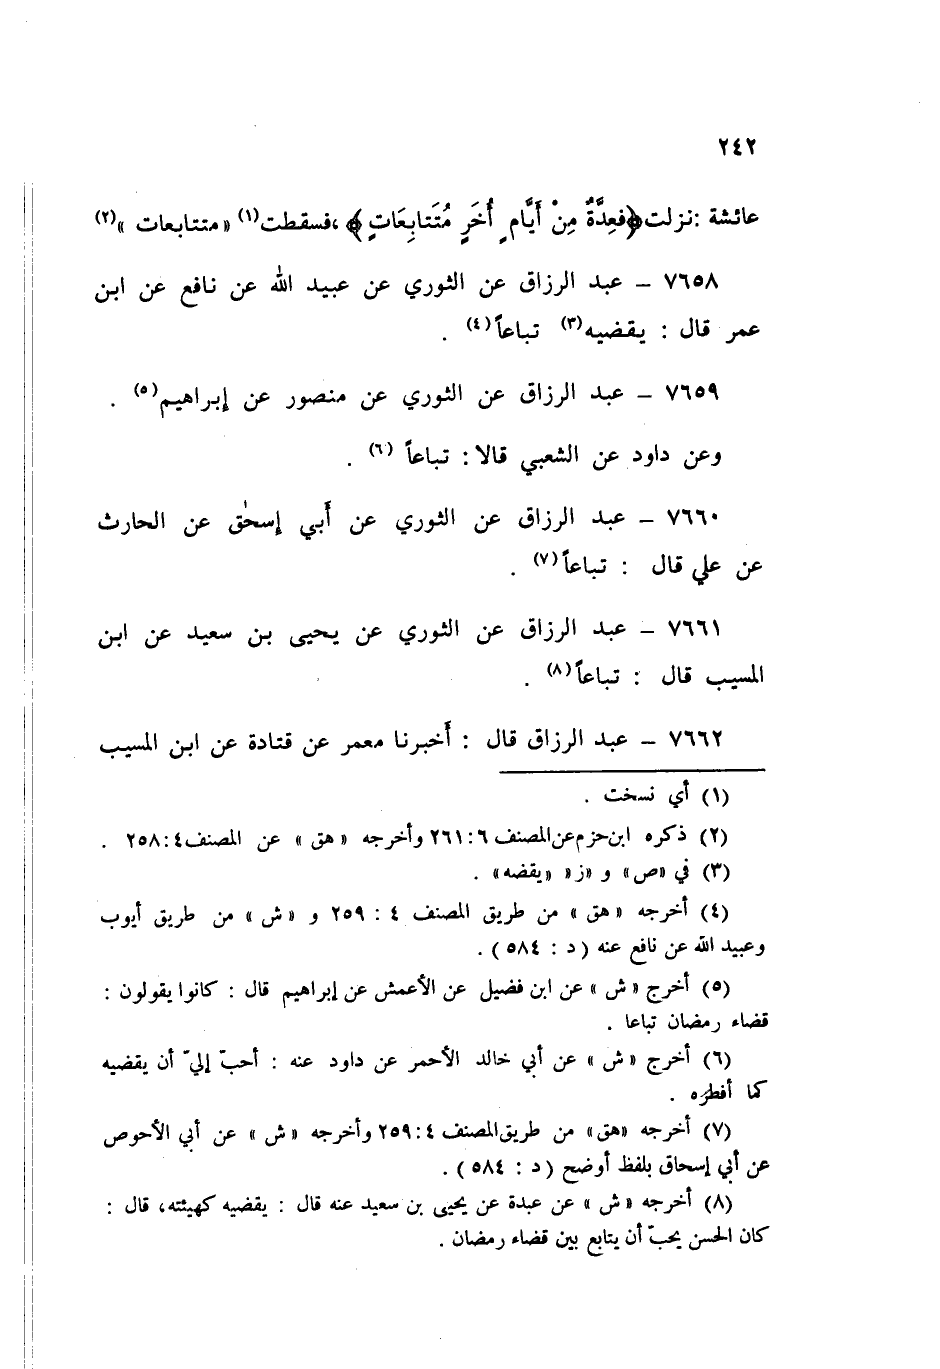 ٢٤٢
عائشة : نزلت ﴿فعِدَّةٌ مِنْ أَيَّامٍ أُخَرٍ مُتَتابِعَاتٍ﴾ ، فسقطت(١) « متتابعات »(٢)
٧٦٥٨ – عبد الرزاق عن الثوري عن عبيد الله عن نافع عن ابن
عمر قال : يقضيه(٣) تباعاً(٤) .
٧٦٥٩ – عبد الرزاق عن الثوري عن منصور عن إبراهيم(٥) .
وعن داود عن الشعبي قالا : تباعاً (٦) .
٧٦٦٠ – عبد الرزاق عن الثوري عن أَبي إسحٰق عن الحارث
عن علي قال : تباعاً(٧) .
٧٦٦١ – عبد الرزاق عن الثوري عن يحيى بن سعيد عن ابن
المسيب قال : تباعاً(٨) .
٧٦٦٢ – عبد الرزاق قال : أَخبرنا معمر عن قتادة عن ابن المسيب
(١) أي نسخت .
(٢) ذكره ابن حزم عن المصنف ٦ : ٢٦١ وأخرجه « هق » عن المصنف ٤ : ٢٥٨ .
(٣) في «ص» و «ز» «يقضه» .
(٤) أخرجه « هق » من طريق المصنف ٤ : ٢٥٩ و « ش » من طريق أيوب
وعبيد الله عن نافع عنه ( د : ٥٨٤ ) .
(٥) أخرج « ش » عن ابن فضيل عن الأعمش عن إبراهيم قال : كانوا يقولون :
قضاء رمضان تباعا .
(٦) أخرج « ش » عن أبي خالد الأحمر عن داود عنه : أحبّ إليّ أن يقضيه
كما أفطره .
(٧) أخرجه «هق» من طريق المصنف ٤ : ٢٥٩ وأخرجه « ش » عن أبي الأحوص
عن أبي إسحاق بلفظ أوضح ( د : ٥٨٤ ) .
(٨) أخرجه « ش » عن عبدة عن يحيى بن سعيد عنه قال : يقضيه كهيئته، قال :
كان الحسن يحبّ أن يتابع بين قضاء رمضان .